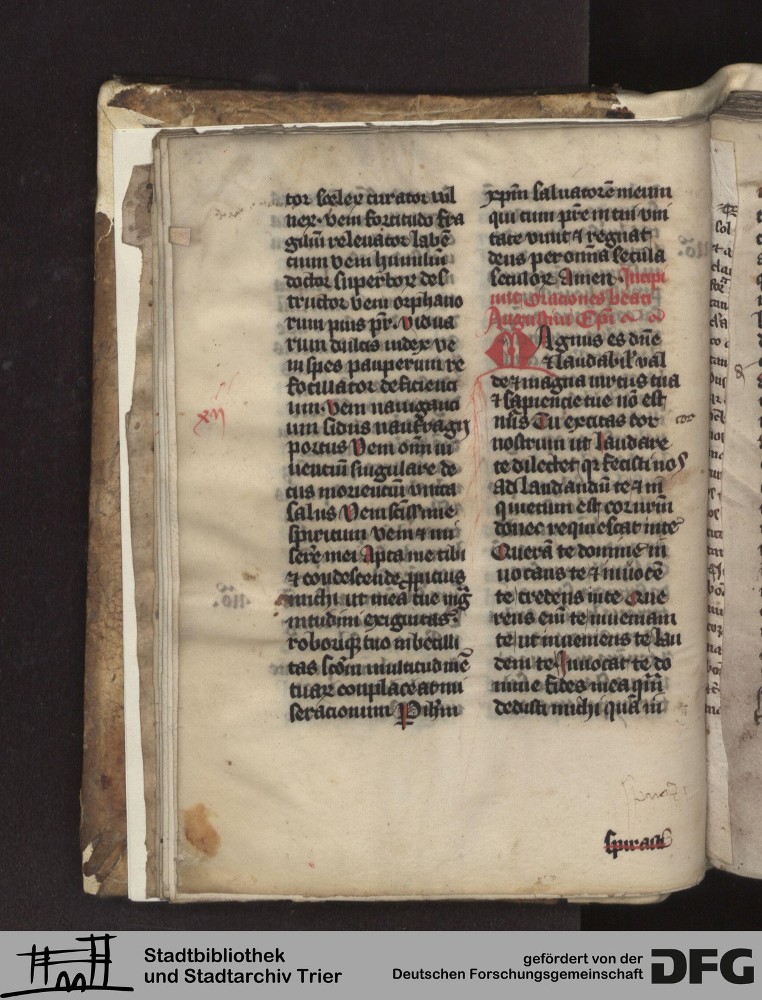 tor sceleꝝ curator vul
neꝝ. veni fortitudo fra
giliū releuator labē
cium veni humiliū
doctor superboꝝ des
tructor veni orphano
rum pius pr̄. vidua
rum dulcis iudex ve
ni spes pauperum re
focillator deficienci
um. veni nauiganci
um sidus naufragꝝ
portus Veni om̄i ui
uenciū singulare de
cus morienciū vnica
salus Veni sc̄issime
spiritum veni ⁊ mi
sere mei Apta me tibi
⁊ condescende ꝓpicius
michi ut mea tue maḡ
nitudini exiguitas.
roboriqꝫ tuo inbecilli
tas scd̄m multitudinē
tuaꝝ conplaceat mi
seracionum P ih̄m
xpm̄ saluatorē meum
qui cum pr̄e in tui vni
tate viuit ⁊ regnat
deus per omnia secula
seculoꝝ Amen Incipi
unt oraciones beati
Augustini Ep̄i
Magnus es dn̄e
⁊ laudabil' val
de ⁊ magna uirtus tua
⁊ sapiencie tue nō est
nūs Tu excitas cor
cor
nostrum ut laudare
te delectet qr fecisti nos
ad laudandū te ⁊ in
quietum est cor nr̄m
donec requiescat in te
Querā te domine in
uocans te ⁊ inuocē
te credens in te Que
rens eni te inueniam
te ut inueniens te lau
dem te Inuocat te do
mine fides mea quā
dedisti michi quā in
spirasti
xij
Stadtbibliothek
und Stadtarchiv Trier
gefördert von der
Deutschen Forschungsgemeinschaft
DFG